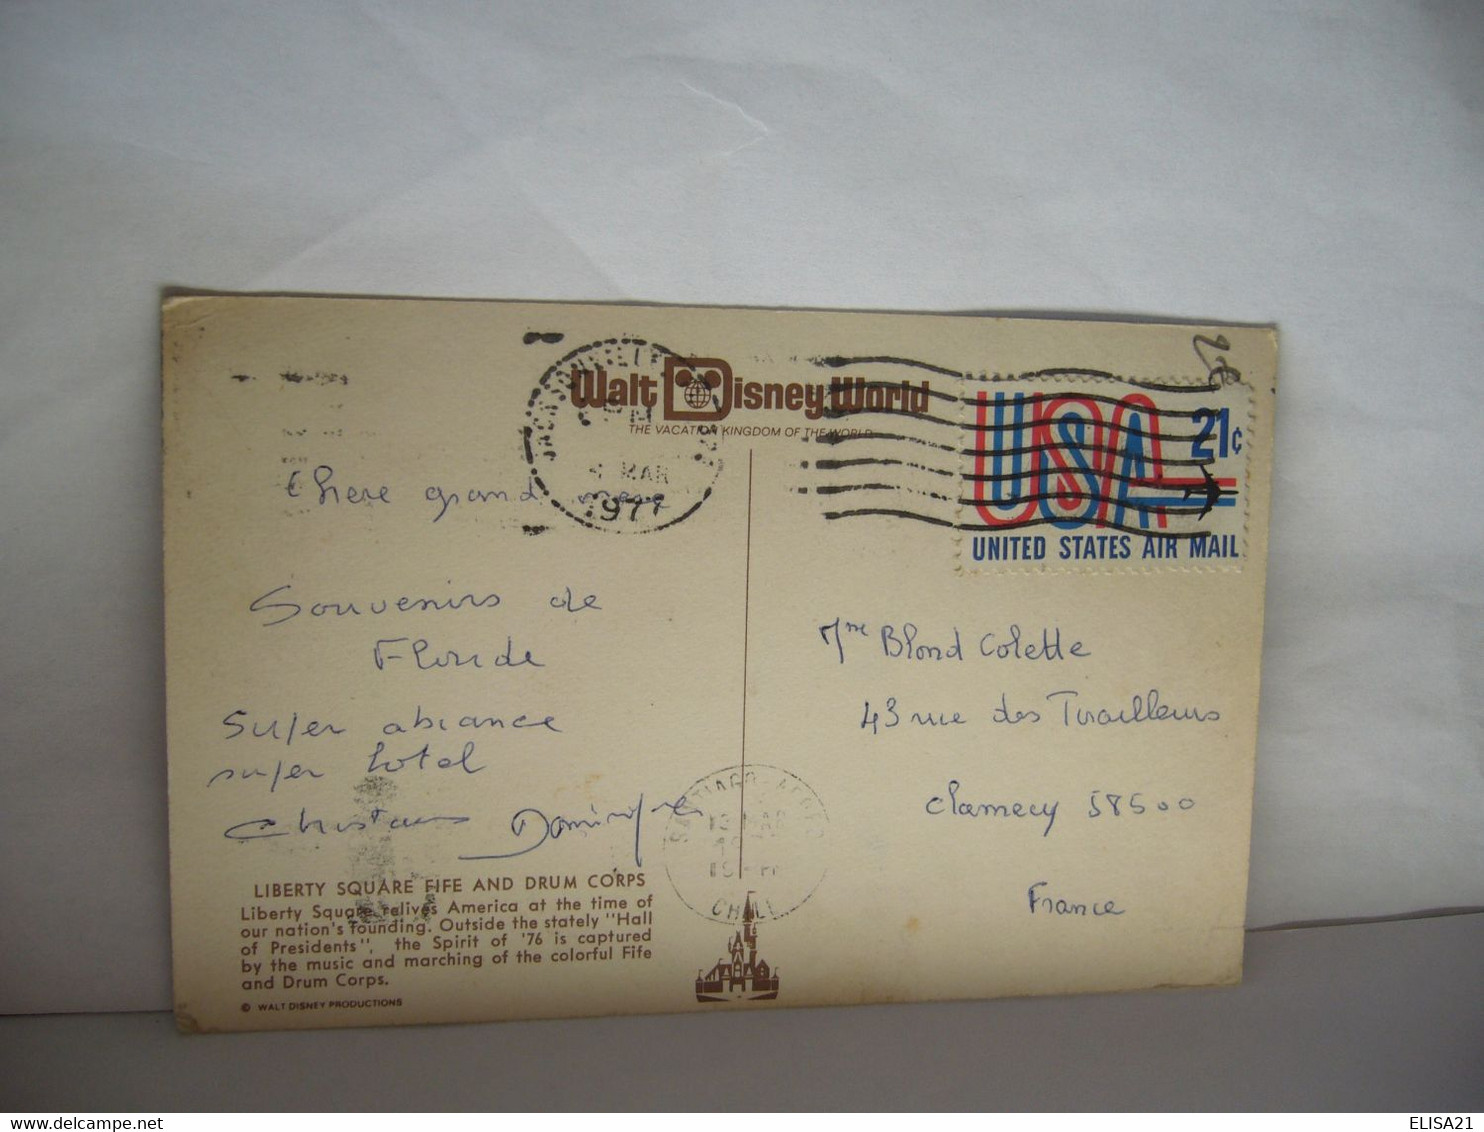 Walt Disney World
THE VACATION KINGDOM OF THE WORLD
JACKSONVILLE
PM
MAR
1977
2€
USA
21c
UNITED STATES AIR MAIL
Chere grand mere
Souvenirs de
Floride
Super abiance
super hotel
Dominique
Mme Blond Colette
43 rue des Tirailleurs
Clamecy 58500
France
SANTIAGO-AEREO
MAR
CHILE
LIBERTY SQUARE FIFE AND DRUM CORPS
Liberty Square relives America at the time of
our nation's founding. Outside the stately "Hall
of Presidents", the Spirit of '76 is captured
by the music and marching of the colorful Fife
and Drum Corps.
© WALT DISNEY PRODUCTIONS
delcampe.net
ELISA21